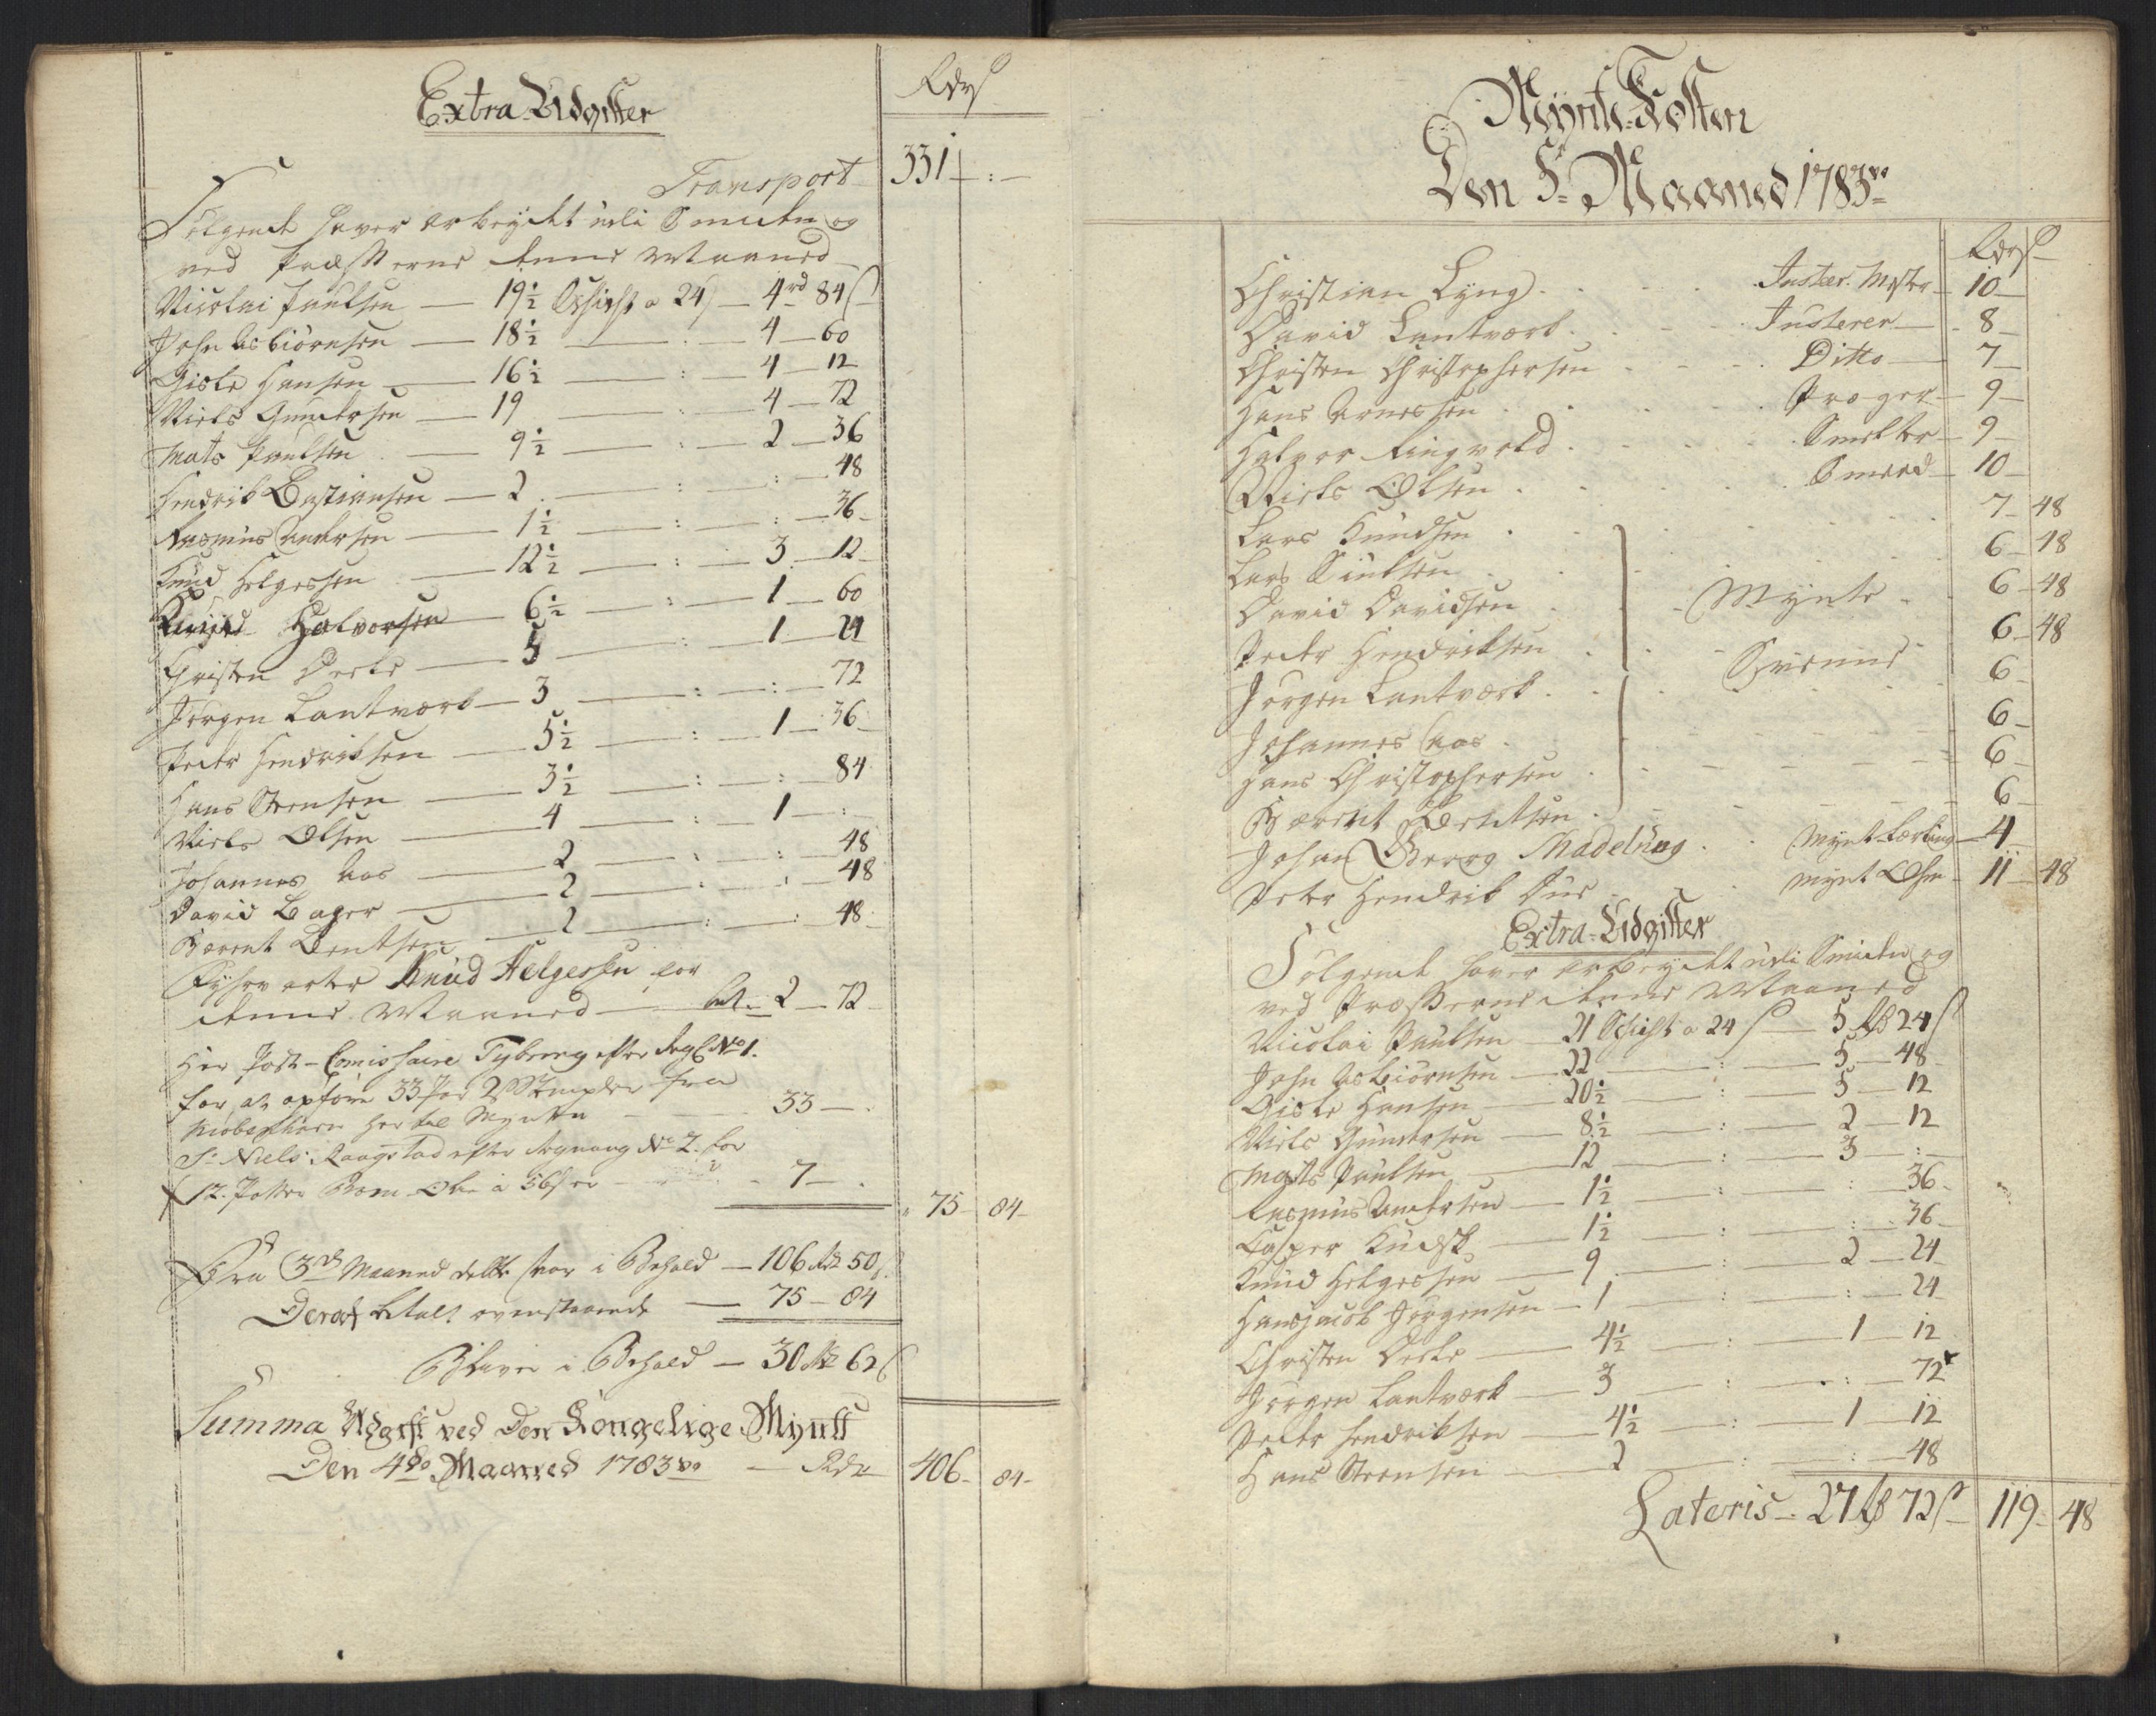 Extra Udgifter
Rdr ß
Transport 331 - : -
Følgende haver arbeydet udi Smeden og
ved Prässerne denne Maaned
Nicolai Paulsen — 19½ Schicht a 24 ß — 4 rd 84 ß
John Asbiørnsen — 18½ — . — 4 — 60
Gisle Hansen — 16½ — : — 4 — 12
Niels Gundersen — 19 — : — 4 — 72
Mats Paulsen — 9½ — : — 2 — 36
Hendrik Bastiansen — 2 — : — : — 48
Rasmus Andersen — 1½ — : — : — 36
Knud Helgessen — 12½ — : — 3 — 12
Halvorsen — 6½ — : — 1 — 60
Christen Decke — 5 — : — 1 — 24
Jørgen Lantværk — 3 — : — : — 72
Peder Hendriksen — 5½ — : — 1 — 36
Hans Steensen — 3½ — : — : — 84
Niels Olsen — 4 — : — 1 — :
Johannes Aas — 2 — : — : — 48
David Bager — 2 — : — : — 48
Bærent Bentsen — 2 — : — : — 48
Knud Helgessen for
denne Maaned — 2 — 72
Her Post-Comissaire Tyberg efter Regl No 1.
for at opføre 33 Stempler fra
Kiøbenhavn her til Mynten — 33 — .
Sr Niels Raagstad efter Regning No 2. for
12. Potter Bom-Olie a 56 ß er — 7 — .
75 - 84 -
Fra 3de Maaned dette Aar i Behold — 106 Rdr 50 ß
Deraf betalt ovenstaaende — 75 - 84
Bliver i Behold — 30 Rdr 62 ß
Summa Udgift ved Den Kongelige Myntt
Den 4de Maaned 1783 — Rdr 406 - 84 -
Mynte-Kosten
Den 5te Maaned 1783
Rdr ß
Christian Lyng . . . Juster Mester — 10 —
David Lantværk . . . Justerer — 8 —
Christen Christophersen . . . Ditto — 7 —
Hans Arnessen . . . Præger — 9 —
Halvor Ringvold . . . Smelter — 9 —
Niels Olsen . . . Smeed — 10 —
Lars Knudsen . . . 7 - 48
Lars Paulsen . . . 6 - 48
David Davidsen . . . Mynte . 6 - 48
Peder Hendriksen . . . 6 - 48
Jørgen Lantværk . . . Svenne . 6 -
Johannes Aas . . . 6 -
Hans Christophersen . . . 6 -
Bærent Bentsen . . . 6 -
Johan Georg Madelung . . Mynt Lærling — 4
Peter Hendrik Dué . . . Mynt — 11 - 48
Extra-Udgifter
Følgende haver arbeydet udi Smeden og
ved Prässerne denne Maaned
Nicolai Paulsen — 21 Schicht a 24 ß — 5 Rdr 24 ß
John Asbiørnsen — 22 — : — 5 — 48
Gisle Hansen — 20½ — : — 5 — 12
Niels Gundersen — 8½ — : — 2 — 12
Mats Paulsen — 12 — : — 3 — : —
Rasmus Andersen — 1½ — : — : — 36
Casper Kudsk — 1½ — : — : — 36
Knud Helgessen — 9 — : — 2 — 24
Hans Jacob Jørgensen — 1 — : — : — 24
Christen Decke — 4½ — : — 1 — 12
Jørgen Lantværk — 3 — : — : — 72
Peder Hendriksen — 4½ — : — 1 — 12
Hans Steensen — 2 — : — : — 48
Lateris — 27 Rdr 72 ß — 119 - 48